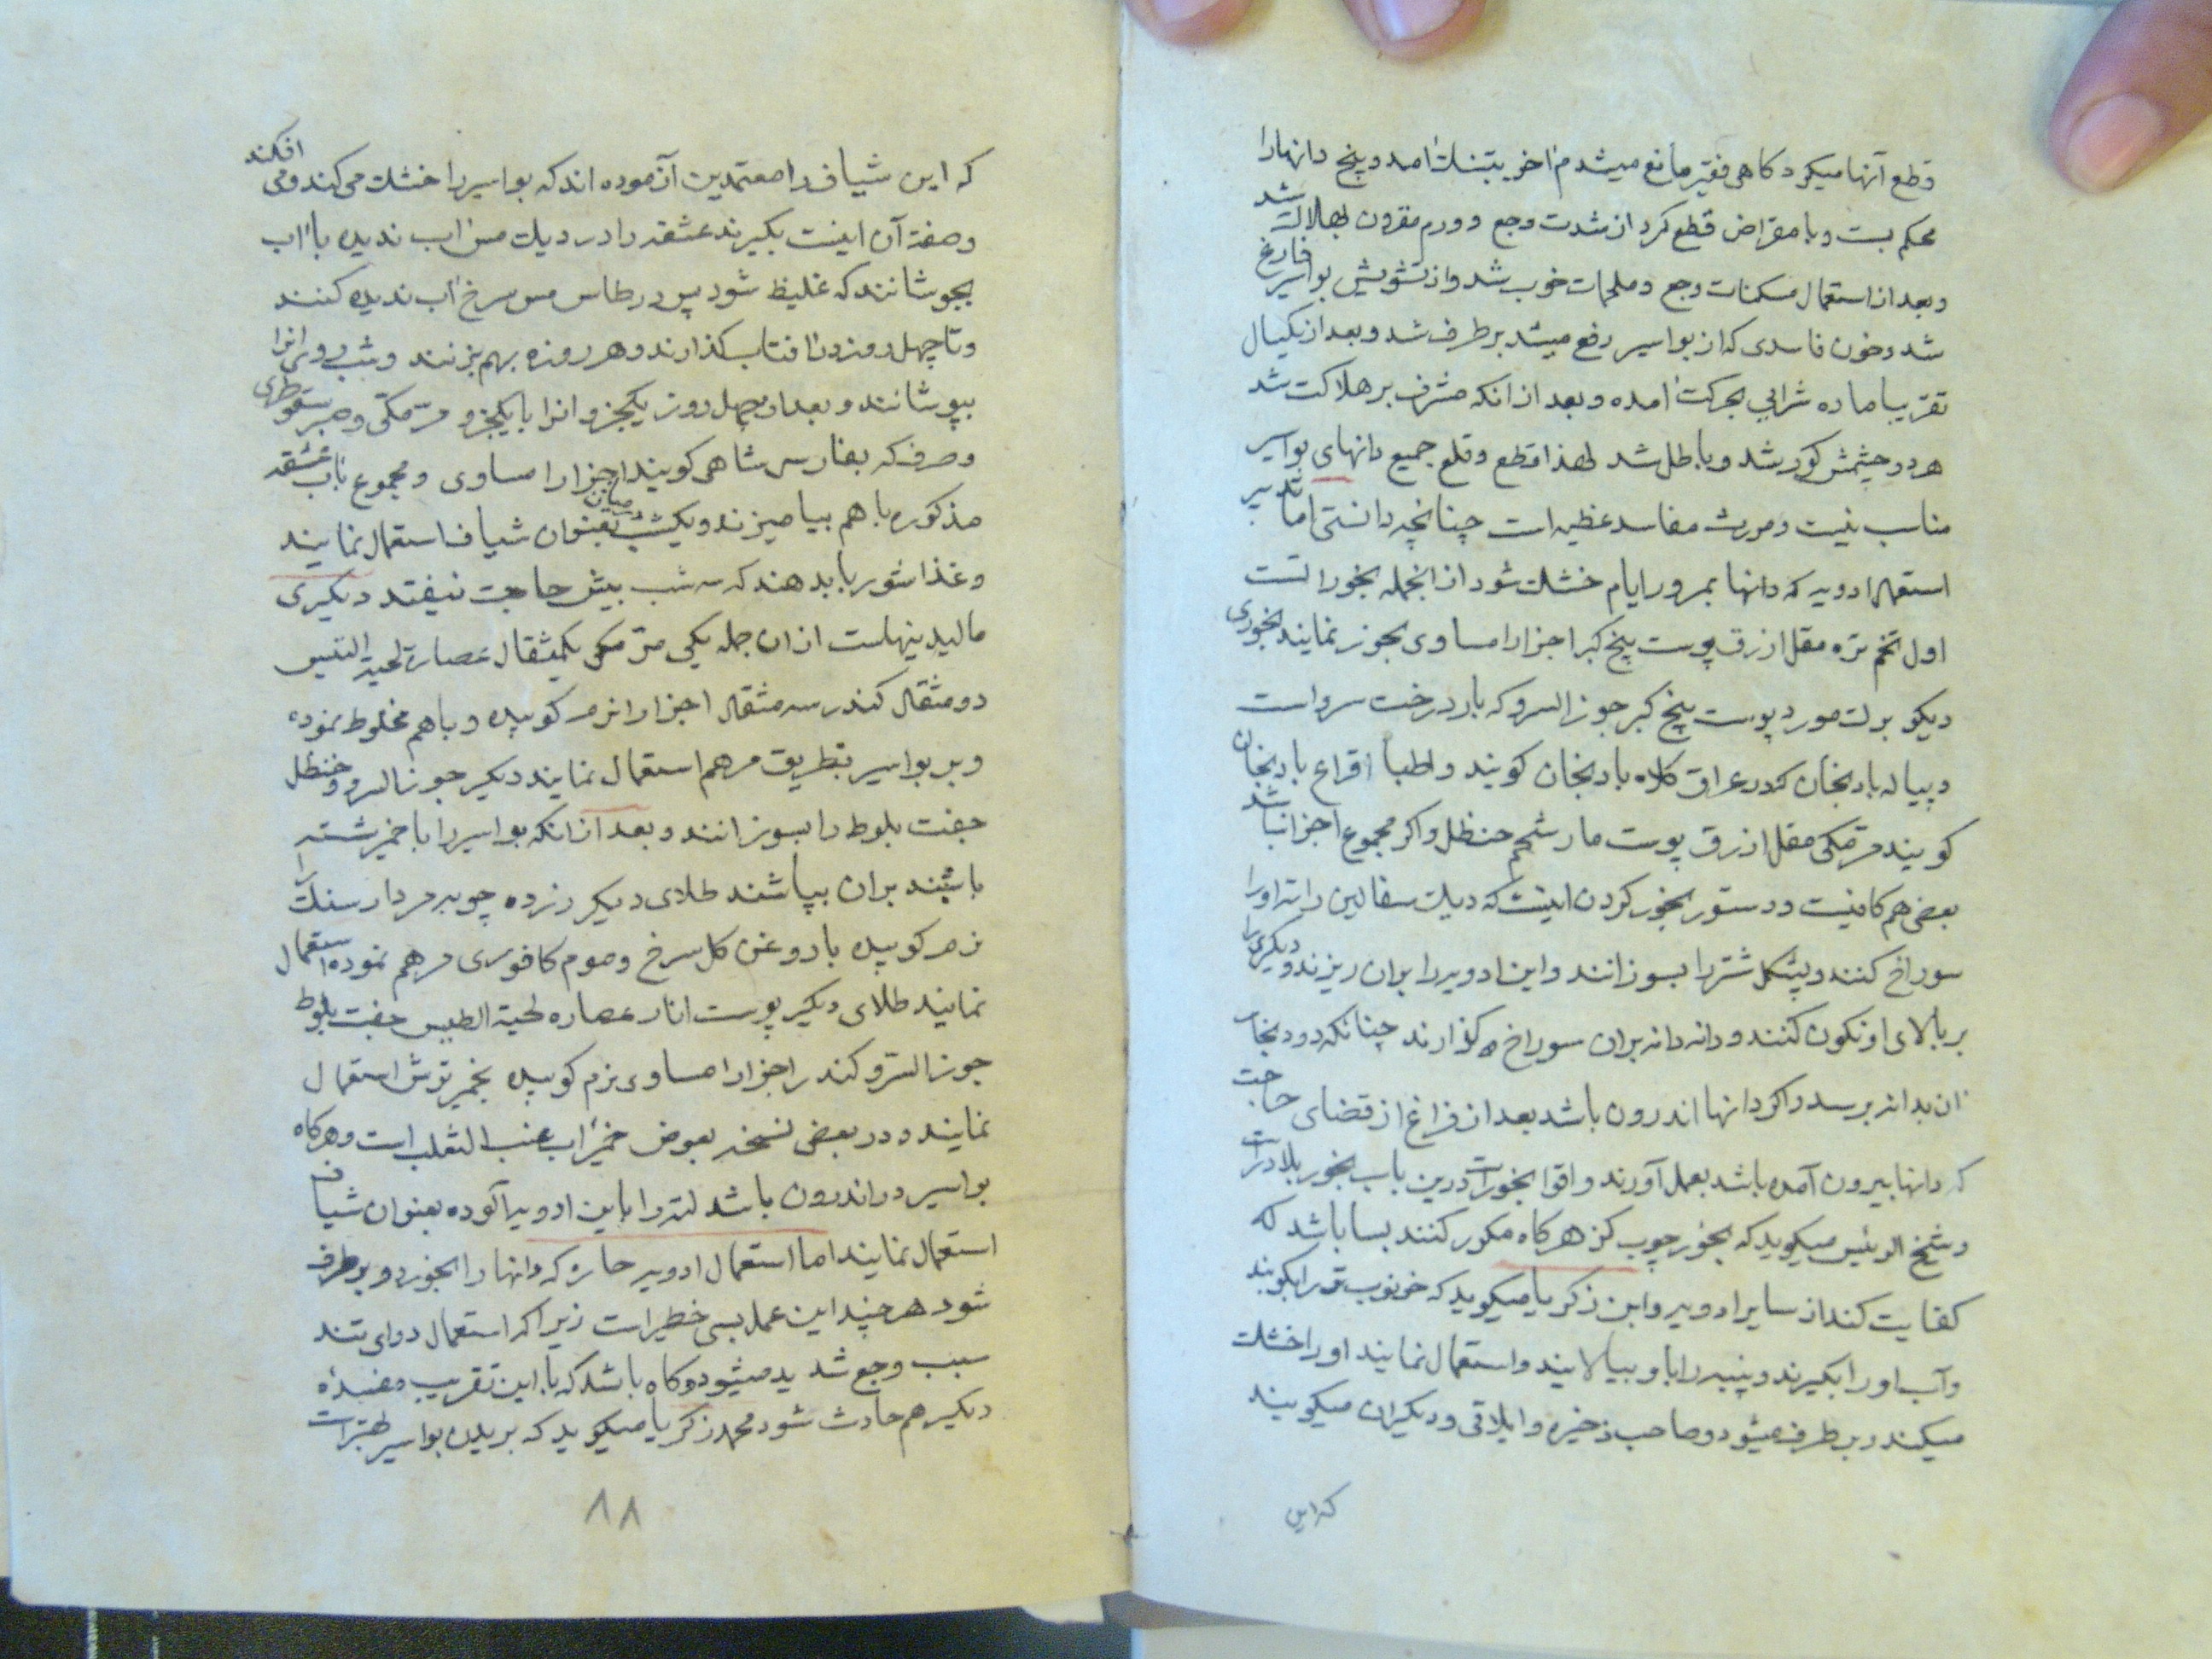 قطع آنها میکرد کاهی فقیر مانع میشدم اخر بتنک امد و بیخ دانها را
محکم بست و با مقراض قطع کرد از شدت وجع و ورم مقرون بهلاکت شد
و بعد از استعمال مسکنات وجع و ملحمات خوب شد و از تشویش بواسیر فارغ
شد و خون فاسدی که از بواسیر دفع میشد بر طرف شد و بعد از یکسال
تقریبا ماده شرایی بحرکت امده و بعد از انکه مشرف بر هلاکت شد
هر دو چشمش کور شد و باطل شد لهذا قطع و قلع جمیع دانهای بواسیر
مناسب نیست و مورث مفاسد عظیمه است چنانچه دانستی اما تدبیر
استعمال ادویه که دانها بمرور ایام خشک شود از انجمله بخوراتست
اول تخم تره مقل ازرق پوست بیخ کبر اجزا را مساوی بخور نمایند بخوری
دیکر برک مورد پوست بیخ کبر جوز السرو که بار درخت سرو است
و پیاله بادنجان که در عراق کلاه بادنجان کویند و اطبا اقماع بادنجان
کویند مر مکی مقل ازرق پوست مار شحم حنظل و اکر مجموع اجزا نباشد
بعضی هم کافیست و دستور بخور کردن اینست که دیک سفالین را ته او را
سوراخ کنند و پشکل شتر را بسوزانند و این ادویه را بران ریزند و دیکری را
بر بالای او نکون کنند و دانه دانه بران سوراخ کذارند چنانکه دود بخار
ان بدانه برسد و اکر دانها اندرون باشد بعد از فراغ از قضای حاجت
که دانها بیرون آمده باشد بعمل آورند و اقوا بخورات درین باب بخور بلادرات
و شیخ الرئیس میکوید که بخور چوب کز هر کاه مکرر کنند بسا باشد که
کفایت کند از سایر ادویه و ابن زکریا میکوید که خرنوب تر را بکوبند
و آب او را بکیرند و پنبه را باو بیالایند و استعمال نمایند او را خشک
میکند و بر طرف میشود و صاحب ذخیره و ایلاقی و دیکران میکویند
که این
که این شیاف را معتمدین آزموده اند که بواسیر را خشک می کند و می افکند
و صفة آن اینست بکیرند عشقه را در دیک مس اب ندیده با اب
بجوشانند که غلیظ شود پس در طاس مس سرخ اب ندیده کنند
و تا چهل روز در افتاب کذارند و هر روزه بهم بزنند و شب روی انرا
بپوشانند و بعد از چهل روز یکجزو انرا با یکجزو مر مکی و صبر سقوطری
و حرف که بفارسی شاهی کویند اجزا را مساوی و مجموع باب عشقه
مذکوره با هم بیامیزند و یکشب درمیان بعنوان شیاف استعمال نمایند
و غذا شوربا بدهند که سه شب پیش حاجت نیفتد دیکری
مالیدینهاست از ان جمله یکی مر مکی یکمثقال عصاره لحیة التیس
دو مثقال کندر سه مثقال اجزا را نرم کوبیده و با هم مخلوط نموده
و بر بواسیر بطریق مرهم استعمال نمایند دیکر جوز السرو و حنظل
جفت بلوط را بسوزانند و بعد از انکه بواسیر را با خمر شسته
باشند بران بپاشند طلای دیکر زرده چوبه مردار سنک را
نرم کوبیده با روغن کل سرخ و موم کافوری مرهم نموده استعمال
نمایند طلای دیکر پوست انار عصاره لحیة التیس جفت بلوط
جوز السرو کندر اجزا را مساوی نرم کوبیده بخمر ترش استعمال
نمایند و در بعضی نسخه بعوض خمر اب عنب الثعلب است و هرکاه
بواسیر در اندرون باشد لته را باین ادویه آلوده بعنوان شیاف
استعمال نمایند اما استعمال ادویه حاره که دانها را بخورد و بر طرف
شود هر چند این عمل بسی خطیر است زیرا که استعمال دوای تند
سبب وجع شدید میشود و کاه باشد که باین تقریب مفسده
دیکر هم حادث شود محمد زکریا میکوید که بریدن بواسیر بهتر است
۸۸